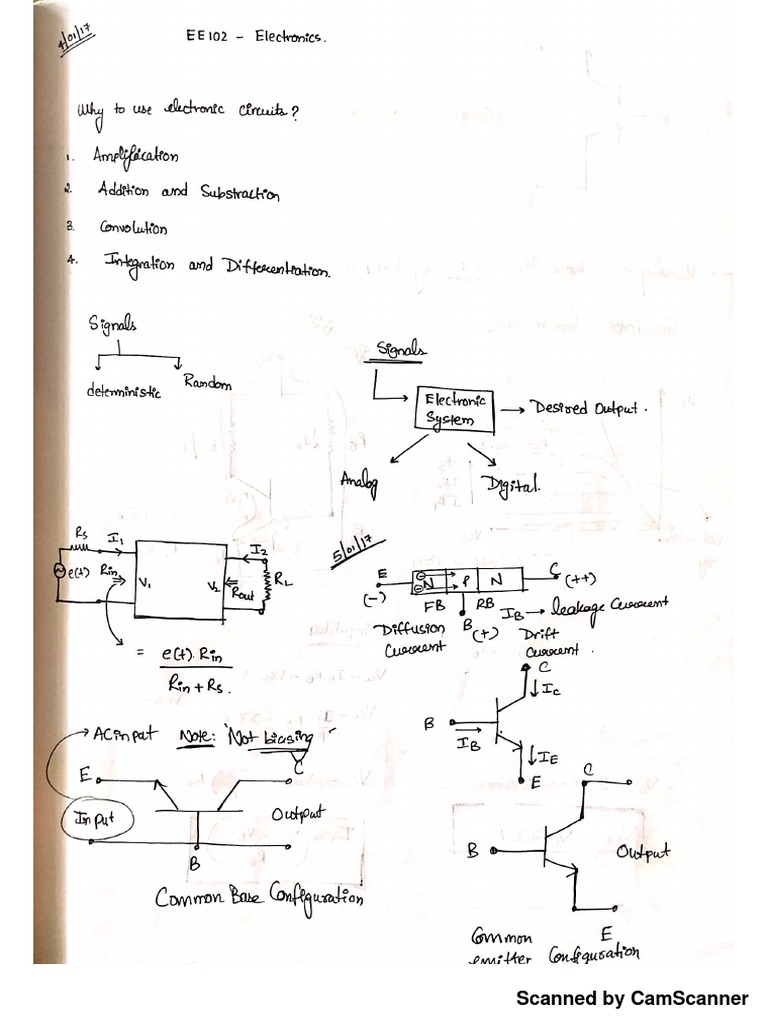 4/01/17
EE102 - Electronics.
Why to use electronic circuits?
1. Amplification
2. Addition and Substraction
3. Convolution
4. Integration and Differentiation.
Signals
deterministic Random
Signals
Electronic
System
Desired Output.
Analog Digital.
Rs I1 I2
e(t) Rin V1 V2 Rout RL
= e(t). Rin
Rin + Rs.
5/01/17
E N P N C (++)
(-) FB RB IB → leakage Current
B (+)
Diffusion
Current
Drift
Current.
C
IC
B IB
IE
E
AC input Note: 'Not biasing'
E C
Input Output
B
Common Base Configuration
C
B Output
E
Common
emitter Configuration
Scanned by CamScanner